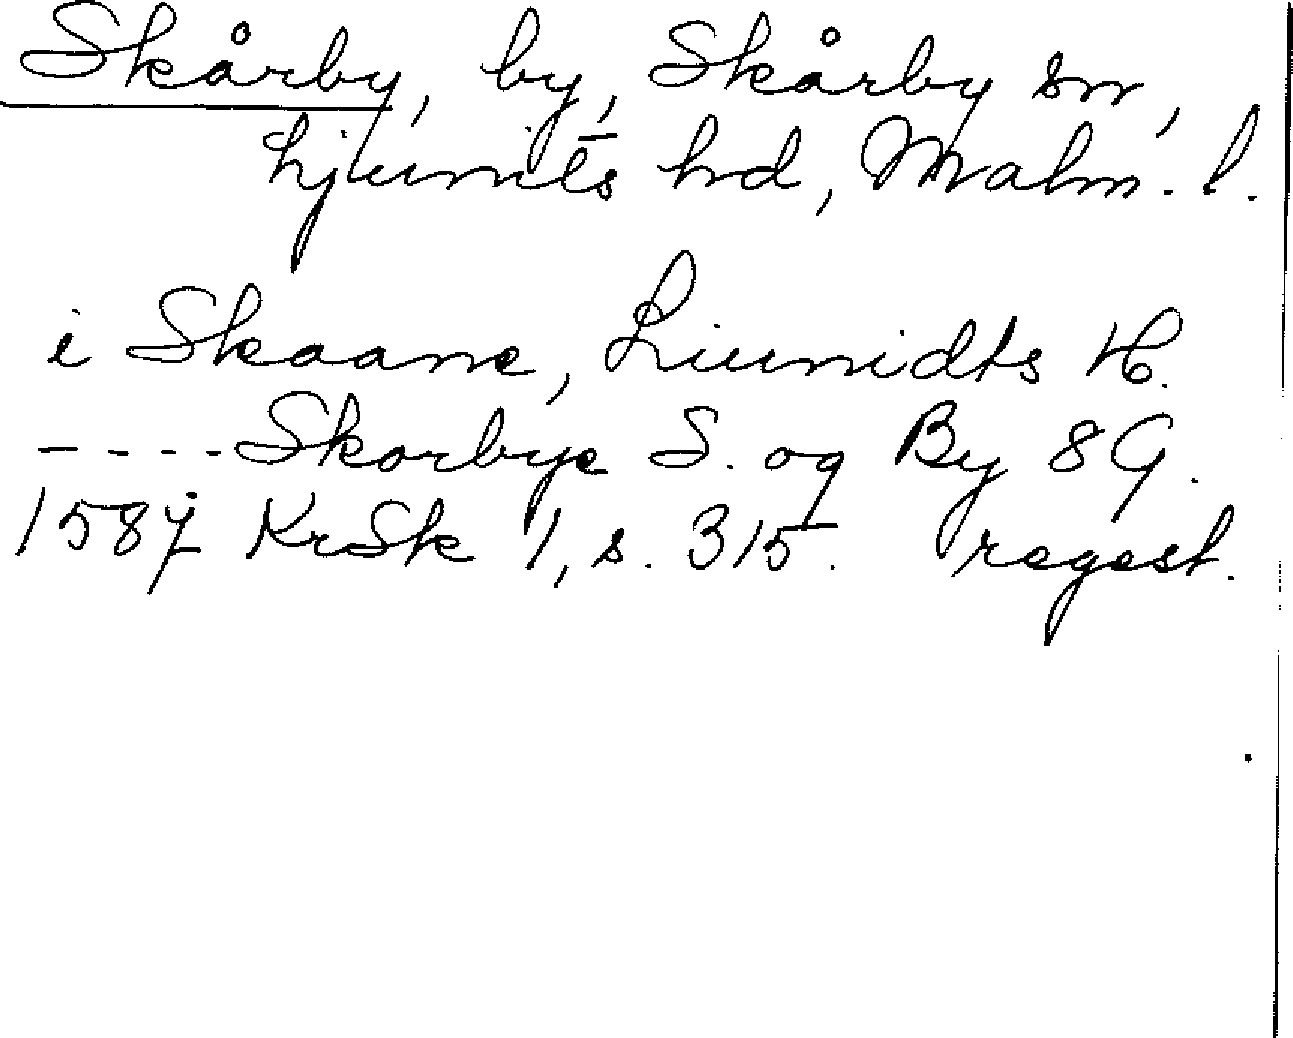 Skårby, by, Skårby sn,
Ljunits hd, Malm. l.
i Skaane, Liunidts H.
----Skorbye S. og By 8 G.
1587 KrSk 1, s. 315. regest.